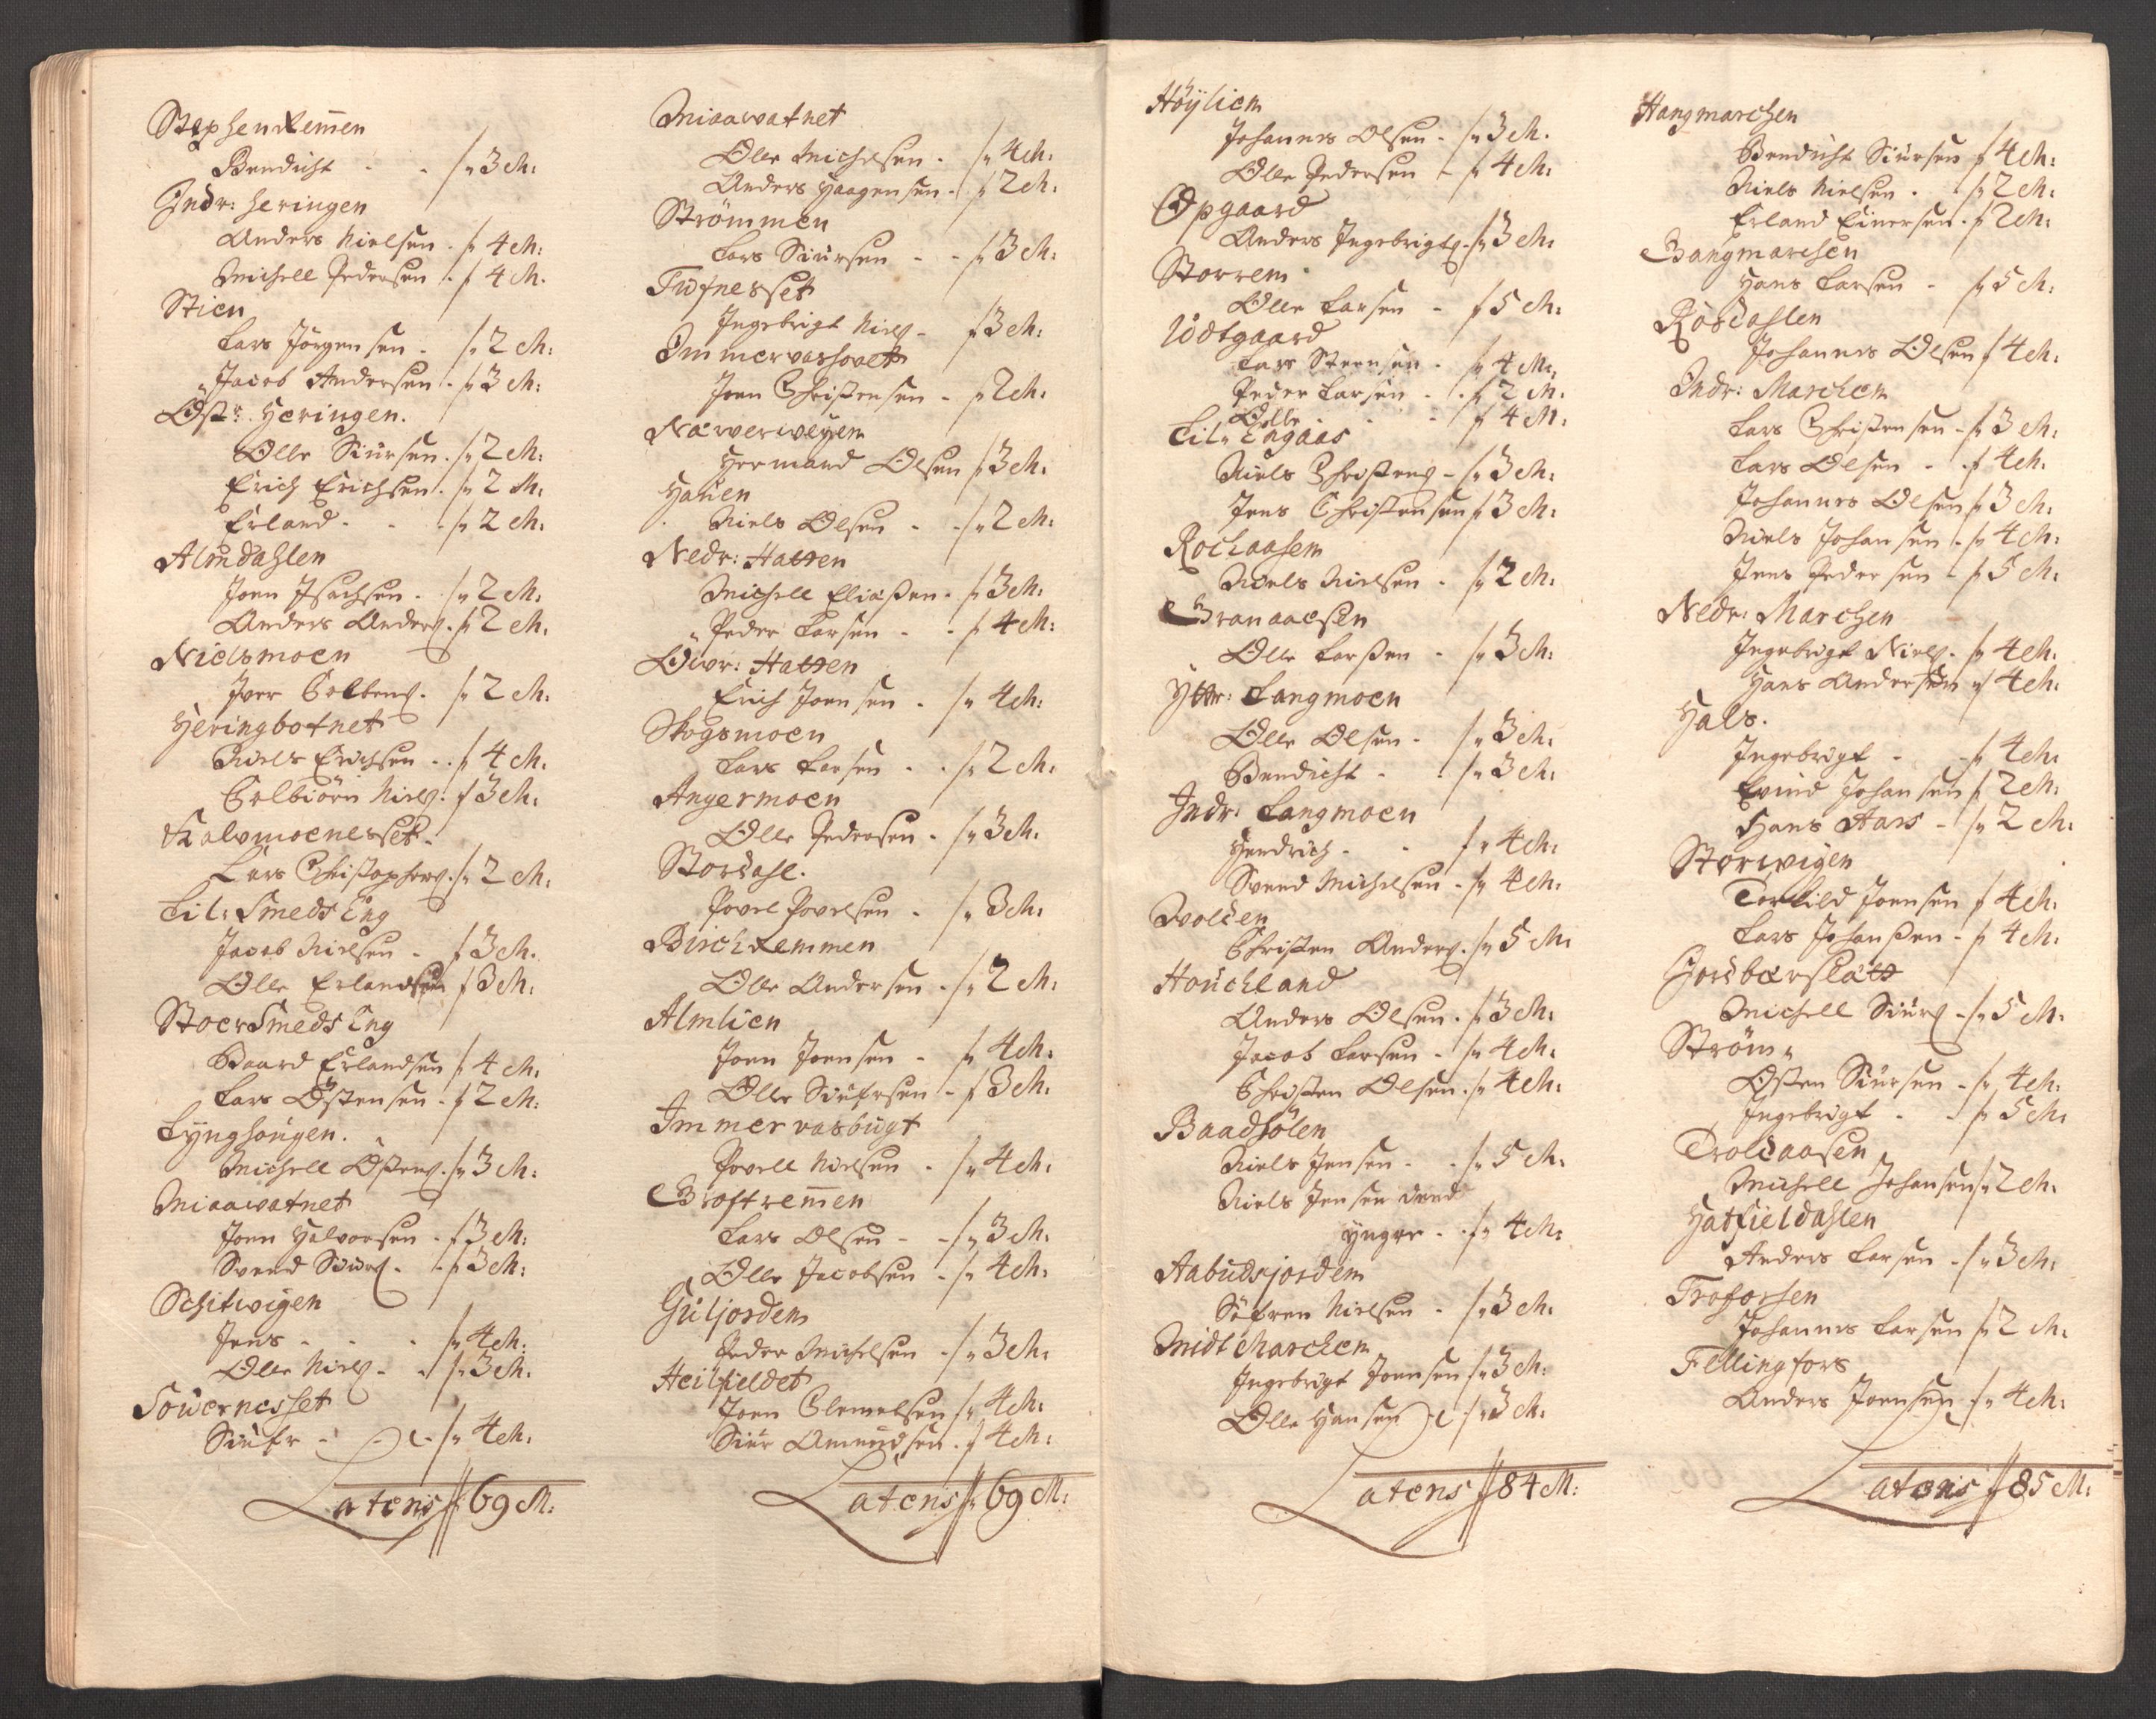 Stephenremen
Bendicht - - / „ 3 M:
Indr: Heringen
Anders Nielsen - / „ 4 M:
Michell Pedersen - / „ 4 M.
Stien
Lars Jörgensen - / „ 2 M:
Jacob Andersen - / „ 3 M:
Östr: Heringen.
Olle Siursen - / „ 2 M:
Erich Erichsen - / „ 2 M:
Erland - - / „ 2 M:
Almdahlen
Joen Isachsen - / „ 2 M:
Anders Anders: / „ 2 M.
Nielsmoen
Iver Colbens: / „ 2 M:
Heringbotnet
Niels Erichsen - / „ 4 M:
Colbiörn Niels: / 3 M:
Kalvmoenesset.
Lars Christophers: / „ 2 M:
Lil: Smeds Eng
Jacob Nielsen - / 3 M.
Olle Erlandsen / 3 M:
StoerSmeds Eng
Baard Erlandsen / 4 M:
Lars Östensen - / 2 M:
Lynghougen.
Michell Östens: / „ 3 M:
Miaavatnet
Joen Halvorsen - / 3 M:
Svend Siurs: - / „ 3 M:
Schitvigen
Jens - - / „ 4 M:
Olle Niels: - / „ 3 M.
Souernesset
Siufr - - / „ 4 M:
Latens / „ 69 M:
Miaavatnet
Olle Michelsen - / „ 4 M:
Anders Haagensen - / „ 2 M:
Strömmen
Lars Siursen - - / „ 3 M:
Tufnesset
Ingebrigt Niels: - / 3 M:
Ommervashovet
Joen Christensen - / „ 2 M:
Næverveyem
Hermand Olsen / „ 3 M:
Hauen
Niels Olsen - - / „ 2 M:
Nedr: Hatten
Michell Eliaßen - / „ 3 M:
Peder Larsen - - / „ 4 M:
Öwr: Hatten
Erich Joensen - / „ 4 M:
Skogsmoen
Lars Larsen - - / „ 2 M:
Angermoen
Olle Pedersen - / „ 3 M:
Stordahl.
Povel Povelsen - / „ 3 M:
Birchremmen
Olle Andersen - / „ 2 M:
Almlien
Joen Joensen - / „ 4 M:
Olle Siufrsen - / 3 M:
Immervasbugt
Povell Nielsen - / „ 4 M:
Groftremen
Lars Olsen - - / „ 3 M:
Olle Jacobsen - / „ 4 M:
Guljordem
Peder Michelsen - / „ 3 M:
Heilfieldet
Joen Clemetsen / „ 4 M:
Siur Amundsen - / 4 M:
Latens / „ 69 M:
Höyliem
Johannes Olsen - / „ 3 M.
Olle Pedersen - / „ 4 M:
Opgaard
Anders Ingebrigts: / „ 3 M:
Storrem
Olle Larsen - / 5 M:
Udtgaard
Lars Steensen - / „ 4 M:
Peder Larsen - / „ 2 M.
Olle - - / 4 M:
Lil: Engaas
Niels Christens: - / „ 3 M:
Jens Christensen / „ 3 M:
Rochaasem
Niels Nielsen - / „ 2 M:
Granaasen
Olle Larßen - / „ 3 M:
Yttr: Langmoen
Olle Olsen - / „ 3 M:
Bendicht - - / „ 3 M:
Indr: Langmoen
Hendrich - - / „ 4 M:
Svend Michelsen - / „ 4 M:
Wolden
Christen Anders: / „ 5 M:
Houchland
Anders Olsen - / „ 3 M:
Jacob Larsen - / „ 4 M:
Christen Olsen - / „ 4 M:
Baadfölen
Niels Jensen - - / „ 5 M:
Niels Jensen dend
yngre - - / „ 4 M:
Aabudsjordem
Söfren Nielsen - / „ 3 M:
Midt Marchem
Ingebrigt Joensen / „ 3 M:
Olle Hansen / „ 3 M.
Latens / 84 M:
Hangmarchen
Bendicht Siursen / 4 M:
Niels Nielsen - / „ 2 M:
Erland Einersen - / 2 M:
Bangmarchen
Hans Larsen - / „ 5 M:
Rosdahlen
Johannes Olsen / 4 M:
Indr: Marchem
Lars Christensen - / „ 3 M:
Lars Olsen - - / 4 M.
Johannes Olsen / „ 3 M:
Niels Johansen - / „ 4 M:
Jens Pedersen - / „ 5 M:
Nedr: Marchen
Ingebrigt Niels: / „ 4 M:
Hans Andersen / 4 M:
Hals.
Ingebrigt - - / „ 4 M:
Evind Johansen / „ 2 M:
Hans Aars - / „ 2 M:
Storvigen
Torkild Joensen / 4 M:
Lars Johanßen - / „ 4 M:
Jordbærslatt
Michell Siurs: - / „ 5 M:
Ström„
Östen Siursen - / „ 4 M:
Ingebrigt - - / „ 5 M:
Troldaasen
Michell Johansen / „ 2 M:
Hatfieldahlen
Anders Larsen - / „ 3 M:
Troforsen
Johannes Larsen / „ 2 M:
Fellingfors
Anders Joensen / „ 4 M:
Latens / 85 M: